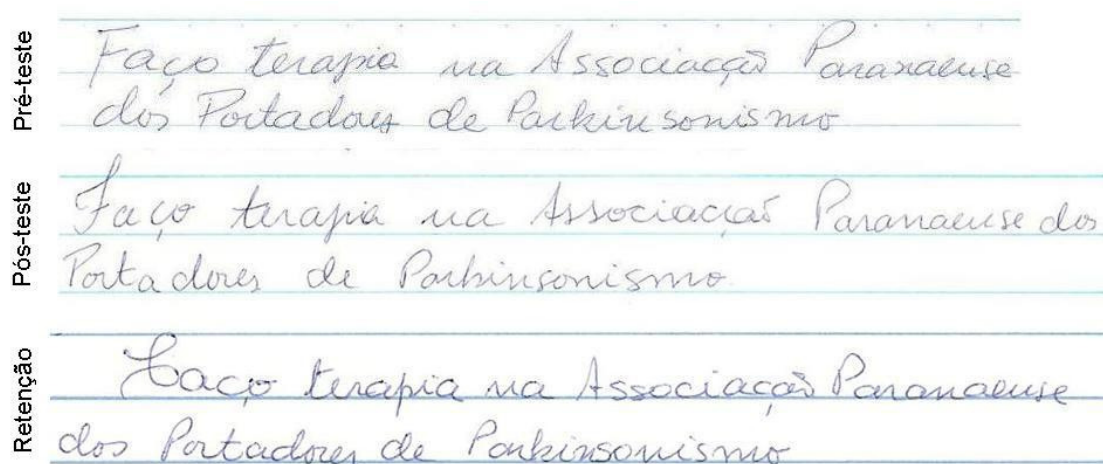 Pré-teste
Faço terapia na Associação Paranaense
dos Portadores de Parkinsonismo
Pós-teste
Faço terapia na Associação Paranaense dos
Portadores de Parkinsonismo
Retenção
Faço terapia na Associação Paranaense
dos Portadores de Parkinsonismo